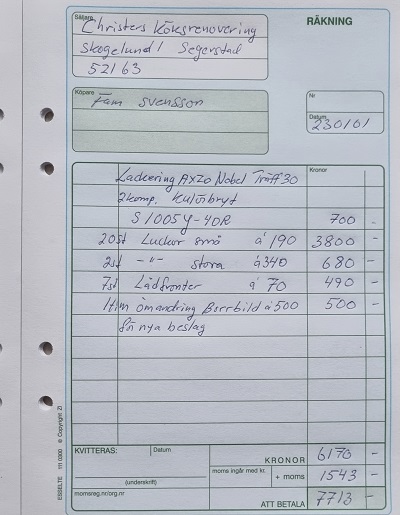 Säljare
RÄKNING
Christers Köksrenovering
Skogelund 1 Segerstad
521 63
Köpare
Fam Svensson
Nr
Datum
230101
Kronor
Lackering AXZO Nobel Träff 30
2komp. Kulörbryt
S 1005Y-40R 700 -
20st Luckor små á 190 3800 -
2st -"- stora á 340 680 -
7st Lådfronter á 70 490 -
1tim omändring Borrbild á 500 500 -
för nya beslag
KVITTERAS:
Datum
KRONOR 6170 -
moms ingår med kr. + moms 1543 -
(underskrift)
momsreg.nr/org.nr
ATT BETALA 7713 -
ESSELTE 111 0300 © Copyright ZI